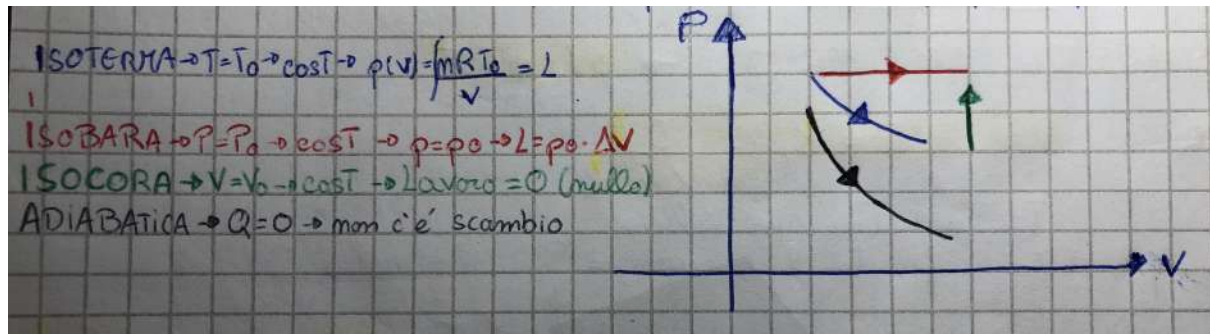 ISOTERMA→T=T₀→cosT→ p(v)=∫nRT₀/V = L
ISOBARA→P=P₀→cosT→ p=p₀→L=p₀·ΔV
ISOCORA→V=V₀→cosT→Lavoro=0 (nullo)
ADIABATICA→Q=0→non c'é scambio
P
V